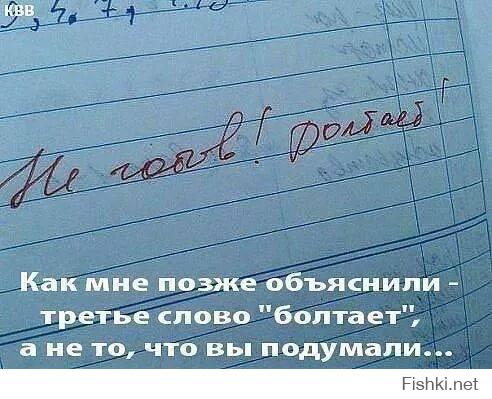 КВВ
Не готов! Болтает!
Как мне позже объяснили -
третье слово "болтает",
а не то, что вы подумали...
Fishki.net